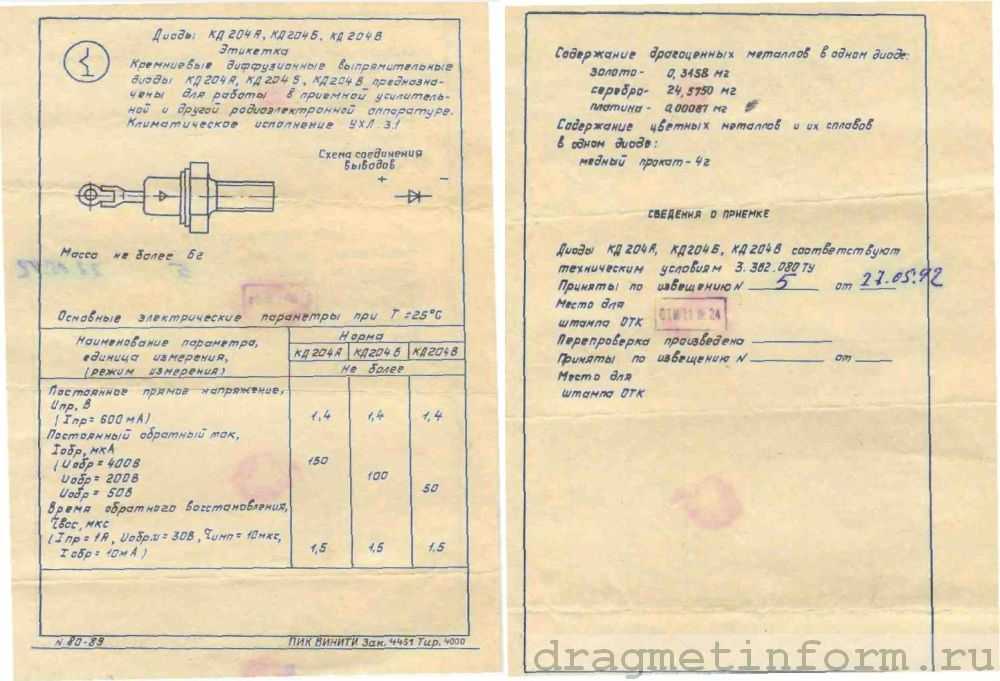 Диоды КД204А, КД204Б, КД204В
Этикетка
Кремниевые диффузионные выпрямительные
диоды КД204А, КД204Б, КД204В предназна-
чены для работы в приемной усилитель-
ной и другой радиоэлектронной аппаратуре.
Климатическое исполнение УХЛ 3.1
Схема соединения
выводов
+ −
Масса не более 6г
Основные электрические параметры при T = 25°C
Наименование параметра,
единица измерения,
(режим измерения)
Норма
КД204А КД204Б КД204В
Не более
Постоянное прямое напряжение,
Uпр, В
(Iпр = 600 мА) 1,4 1,4 1,4
Постоянный обратный ток,
Iобр, мкА
(Uобр = 400В 150
Uобр = 200В 100
Uобр = 50В 50
Время обратного восстановления,
τвос, мкс
(Iпр = 1А, Uобр.и = 30В, τимп = 10мкс,
Iобр = 10мА) 1,5 1,5 1,5
N 80-89 ПИК ВИНИТИ Зак. 4451 Тир. 4000
Содержание драгоценных металлов в одном диоде:
золото - 0,3458 мг
серебро - 24,5750 мг
платина - 0,00087 мг
Содержание цветных металлов и их сплавов
в одном диоде:
медный прокат - 4г
СВЕДЕНИЯ О ПРИЕМКЕ
Диоды КД204А, КД204Б, КД204В соответствуют
техническим условиям 3.362.080ТУ
Приняты по извещению N 5 от 27.05.92
Место для
штампа ОТК
Перепроверка произведена
Приняты по извещению N от
Место для
штампа ОТК
dragmetinform.ru